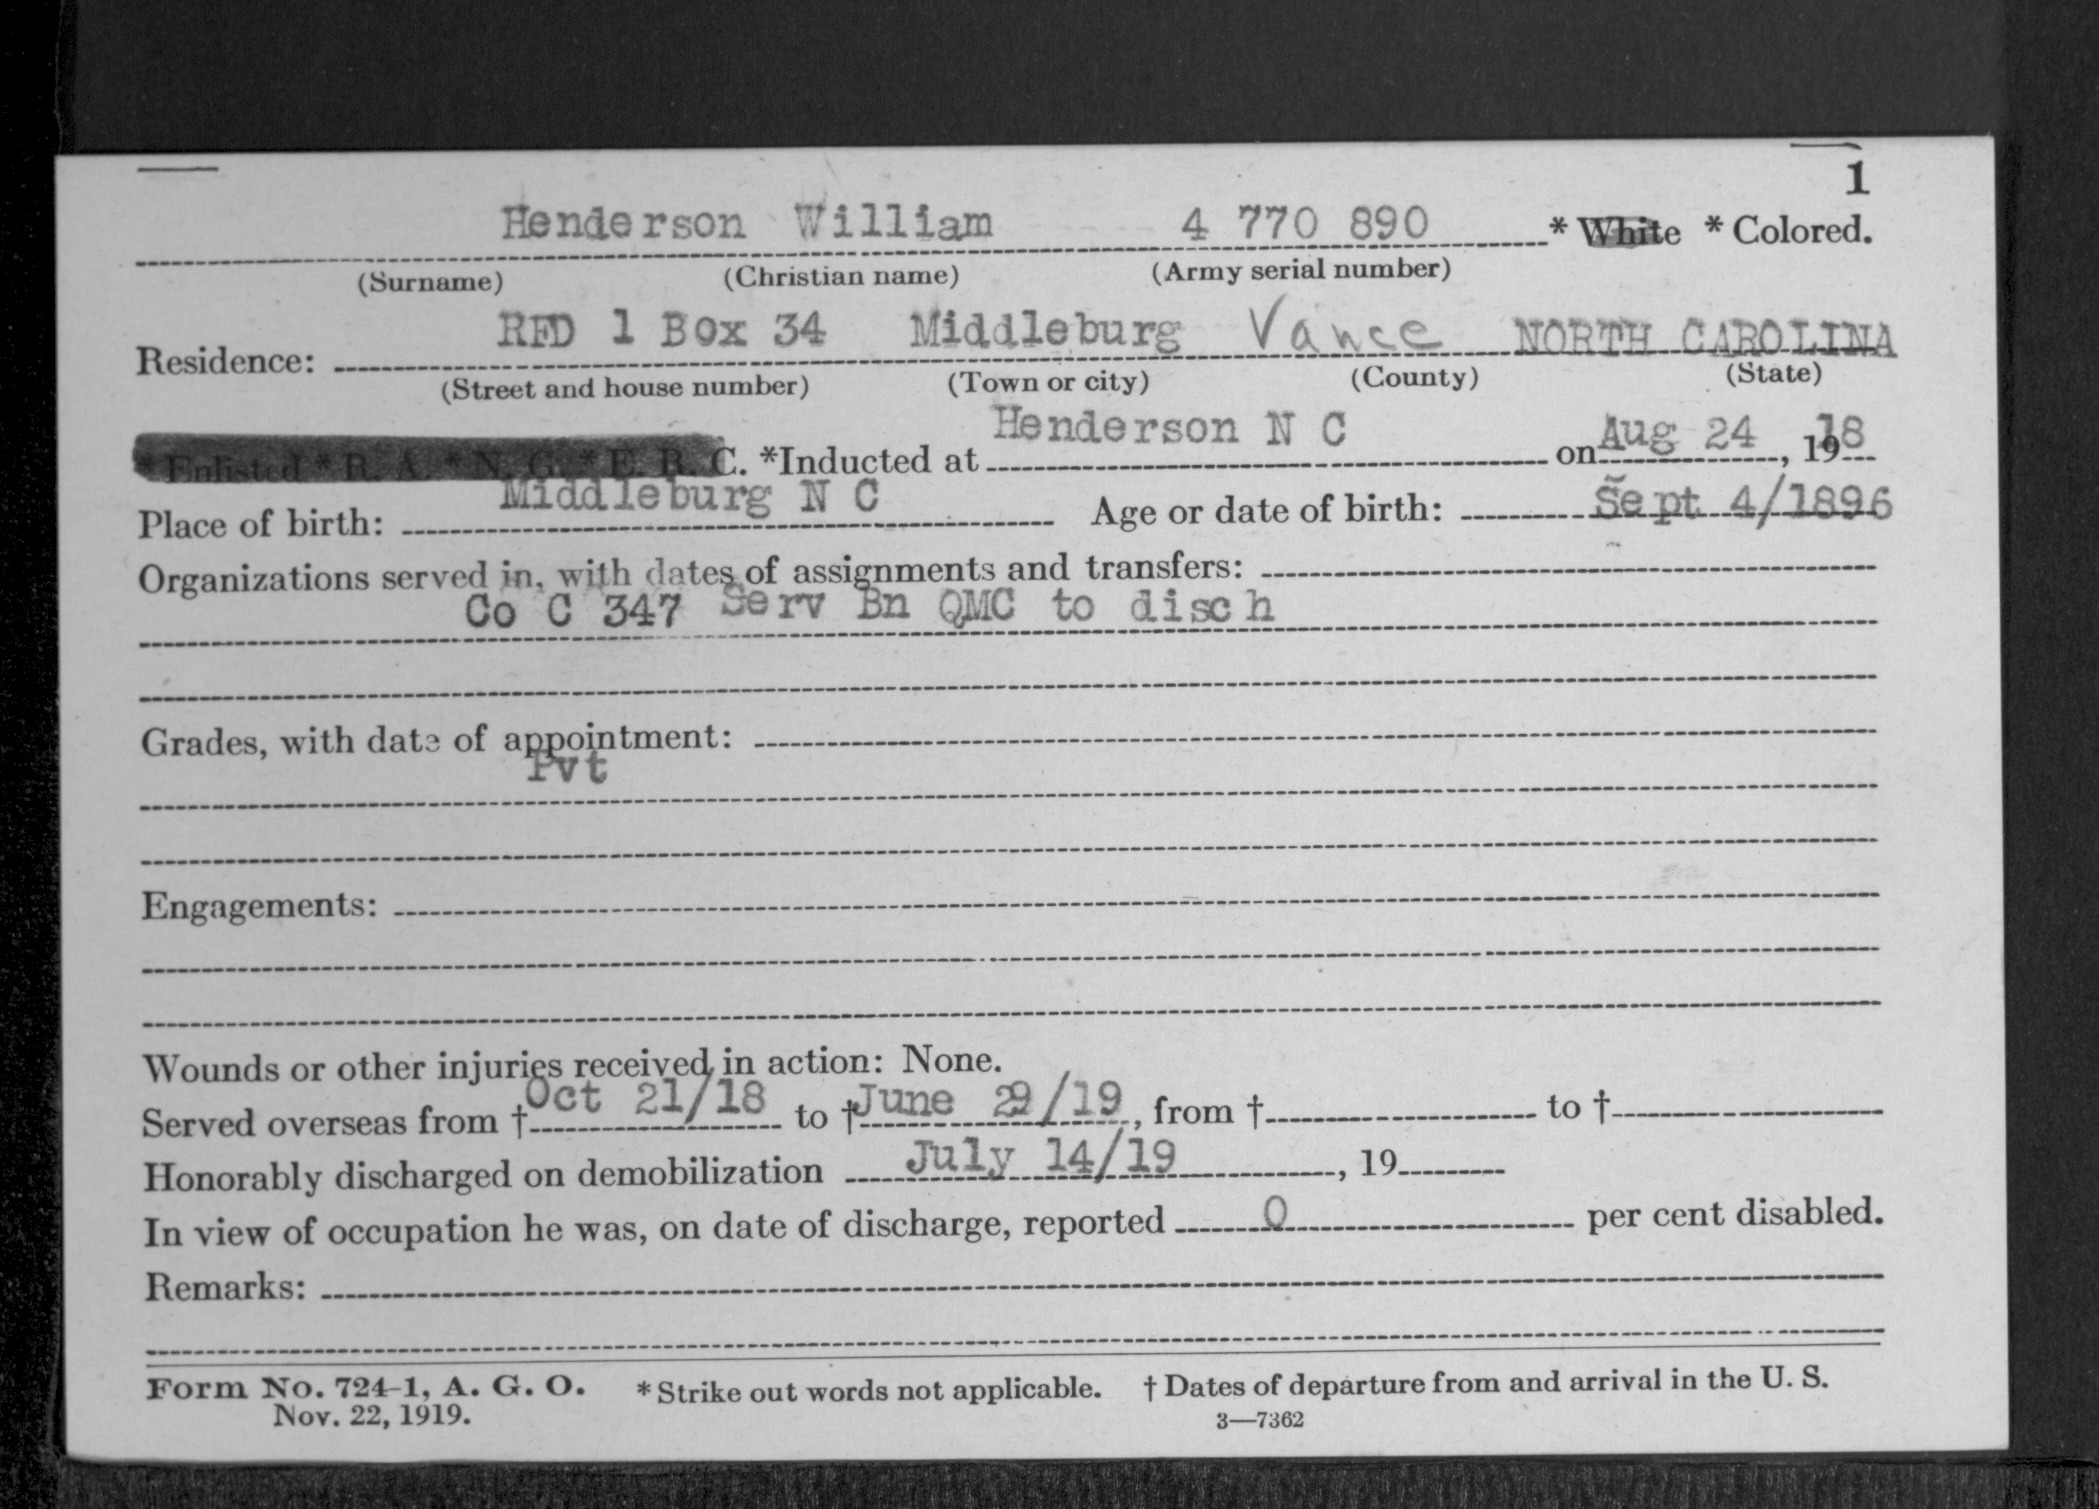 1
Henderson William 4 770 890 * White * Colored.
(Surname) (Christian name) (Army serial number)
Residence: RFD 1 Box 34 Middleburg Vance NORTH CAROLINA
(Street and house number) (Town or city) (County) (State)
* Enlisted * R. A. * N. G. * E. R. C. *Inducted at Henderson N C on Aug 24, 1918
Place of birth: Middleburg N C Age or date of birth: Sept 4/1896
Organizations served in, with dates of assignments and transfers:
Co C 347 Serv Bn QMC to disch
Grades, with date of appointment:
Pvt
Engagements:
Wounds or other injuries received in action: None.
Served overseas from † Oct 21/18 to † June 29/19, from † to †
Honorably discharged on demobilization July 14/19, 19
In view of occupation he was, on date of discharge, reported 0 per cent disabled.
Remarks:
Form No. 724-1, A. G. O. * Strike out words not applicable. † Dates of departure from and arrival in the U. S.
Nov. 22, 1919. 3—7362